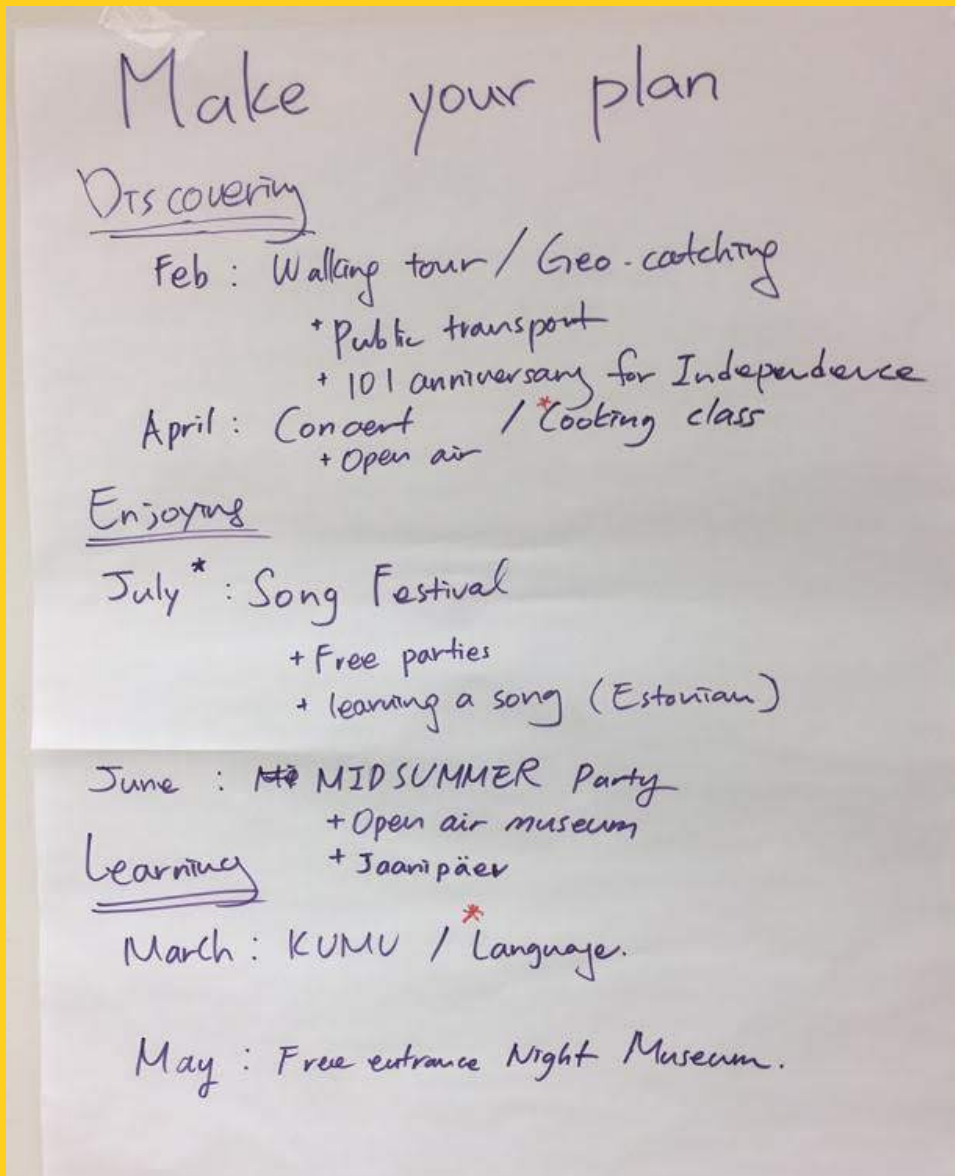 Make your plan
Discovering
Feb : Walking tour / Geo-catching
+ Public transport
+ 101 anniversary for Independence
April : Concert / *Cooking class
+ Open air
Enjoying
July * : Song Festival
+ Free parties
+ learning a song (Estonian)
June : MIDSUMMER Party
+ Open air museum
+ Jaanipäev
Learning
March : KUMU / *Language.
May : Free entrance Night Museum.